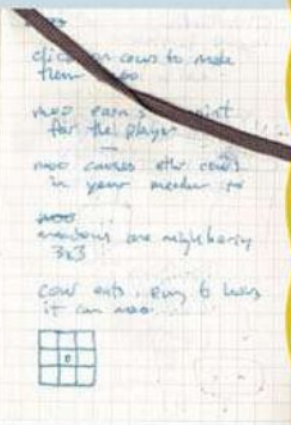 click on cows to make
them moo
moo earns point
for the player
moo causes other cows
in your meadow to
moo
meadows are neighboring
3x3
cow eats, every 6 hours
it can moo